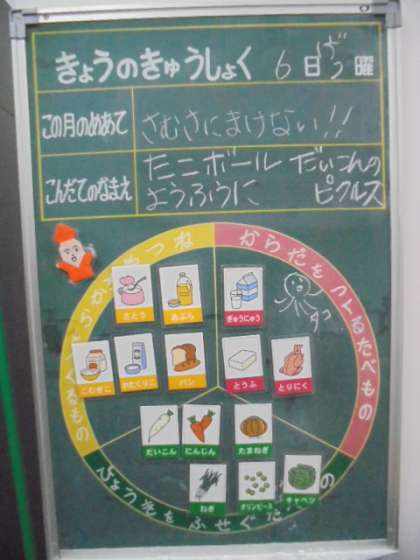 きょうのきゅうしょく 6日 げつ 曜
この月のめあて さむさにまけない!!
こんだてのなまえ たこボール だいこんの
ようふうに ピクルス
からだをつくるたべもの
さとう あぶら ぎゅうにゅう タコ
こむぎこ かたくりこ パン とうふ とりにく
だいこん にんじん たまねぎ
ねぎ グリンピース キャベツ
びょうきをふせぐた